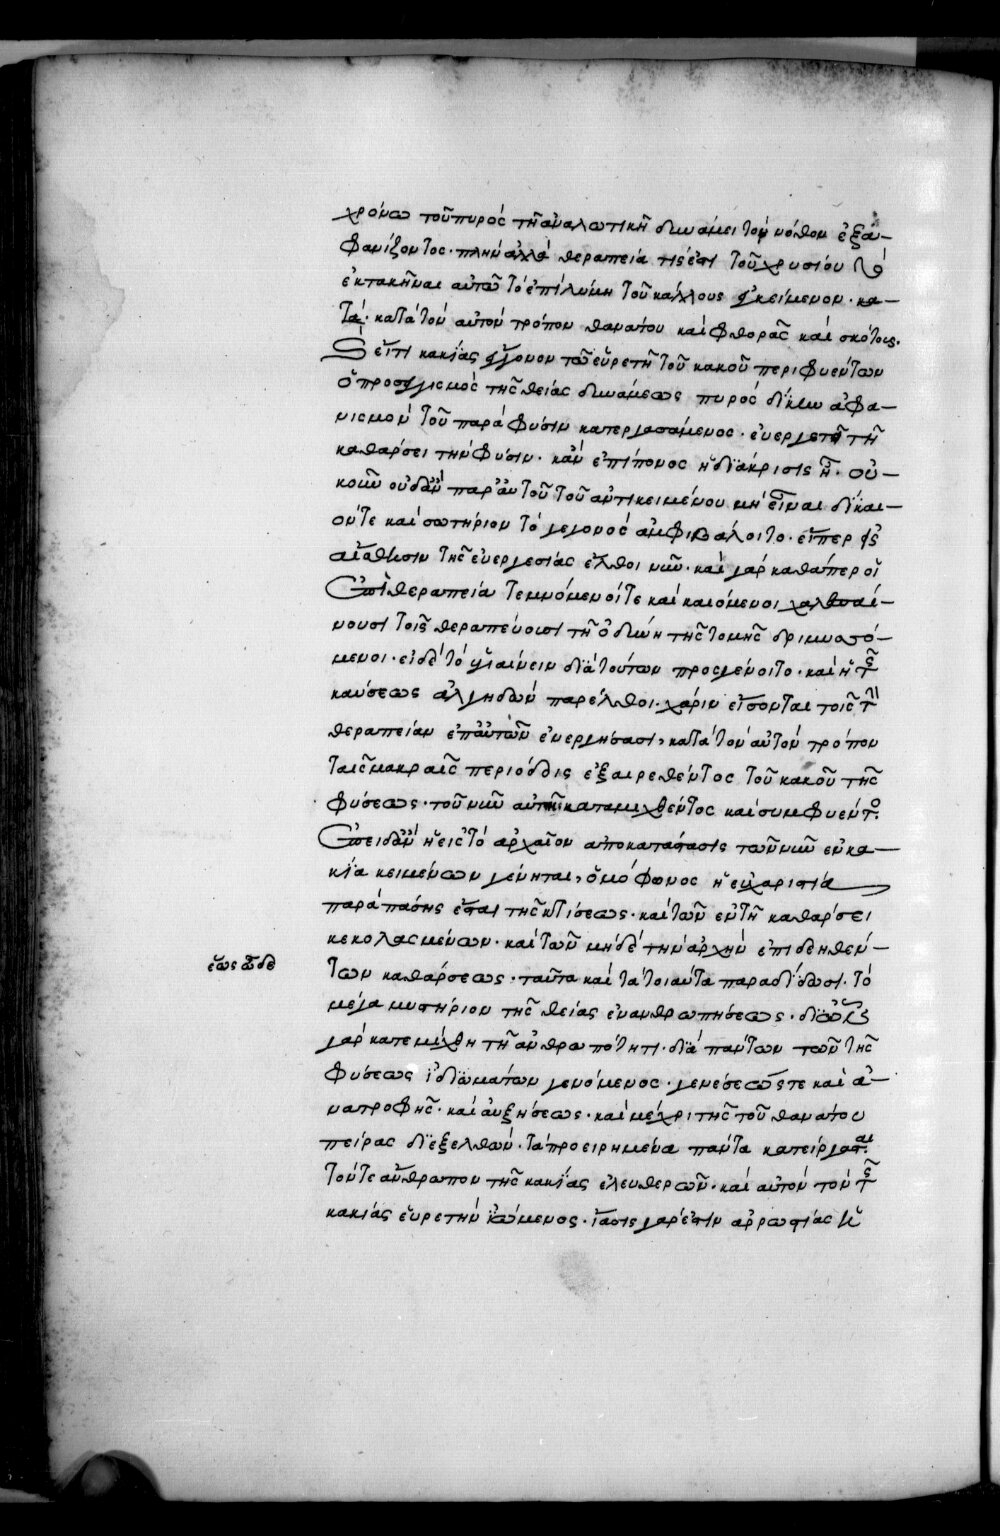 χρόνω τοῦ πυρὸς τῆ ἀναλωτικῆ δυνάμει τὸν νόθον ἐξα-
φανίζοντος· πλὴν ἀλλὰ θεραπεία τίς ἐστι τοῦ χρυσίου τὸ
ἐκτακῆναι αὐτῶ τὸ ἐπὶ λύμη τοῦ κάλλους ἐγκείμενον· κα-
τὰ· κατὰ τὸν αὐτὸν τρόπον θανάτου καὶ φθορᾶς καὶ σκότους·
εἴ τι κακίας ἔγγονον τῶ εὑρετῆ τοῦ κακοῦ περιφυέντων
ὁ προσεγγισμὸς τῆς θείας δυνάμεως πυρὸς δίκην ἀφα-
νισμὸν τοῦ παρὰ φύσιν κατεργασάμενος· εὐεργετεῖ τῆ
καθάρσει τὴν φύσιν· κἂν ἐπίπονος ἡ διάκρισις ἦ· οὐ-
κοῦν οὐδ' ἂν παρ' αὐτοῦ τοῦ ἀντικειμένου μὴ εἶναι δίκαι-
όν τε καὶ σωτήριον τὸ γεγονὸς ἀμφιβάλοιτο· εἴπερ εἰς
αἴσθησιν τῆς εὐεργεσίας ἔλθοι νῦν· καὶ γὰρ καθάπερ οἱ
ἐπὶ θεραπεία τεμνόμενοί τε καὶ καιόμενοι χαλεπαί-
νουσι τοῖς θεραπεύουσι τῆ ὀδύνη τῆς τομῆς δριμυσσό-
μενοι· εἰ δὲ τὸ ὑγιαίνειν διὰ τούτων προσγένοιτο· καὶ ἡ τῆς
καύσεως ἀλγηδὼν παρέλθοι· χάριν εἴσονται τοῖς τὴν
θεραπείαν ἐπ' αὐτῶν ἐνεργήσασι, κατὰ τὸν αὐτὸν τρόπον
ταῖς μακραῖς περιόδοις ἐξαιρεθέντος τοῦ κακοῦ τῆς
φύσεως· τοῦ νῦν αὐτῆ καταμιχθέντος καὶ συμφυέντος·
ἐπειδὰν ἡ εἰς τὸ ἀρχαῖον ἀποκατάστασις τῶν νῦν ἐν κα-
κία κειμένων γένηται, ὁμόφωνος ἡ εὐχαριστία
παρὰ πάσης ἔσται τῆς κτίσεως· καὶ τῶν ἐν τῆ καθάρσει
κεκολασμένων· καὶ τῶν μηδὲ τὴν ἀρχὴν ἐπιδεηθέν-
ἕως ὧδε
των καθάρσεως· ταῦτα καὶ τὰ τοιαῦτα παραδίδωσι· τὸ
μέγα μυστήριον τῆς θείας ἐνανθρωπήσεως· δι' ὧν
γὰρ κατεμίχθη τῆ ἀνθρωπότητι· διὰ πάντων τῶν τῆς
φύσεως ἰδιωμάτων γενόμενος· γενέσεώς τε καὶ ἀ-
νατροφῆς· καὶ αὐξήσεως· καὶ μέχρι τῆς τοῦ θανάτου
πείρας διεξελθών· τὰ προειρημένα πάντα κατείργασται·
τόν τε ἄνθρωπον τῆς κακίας ἐλευθερῶν· καὶ αὐτὸν τὸν τῆς
κακίας εὑρετὴν ἰώμενος· ἴασις γάρ ἐστιν ἀρρωστίας ἡ